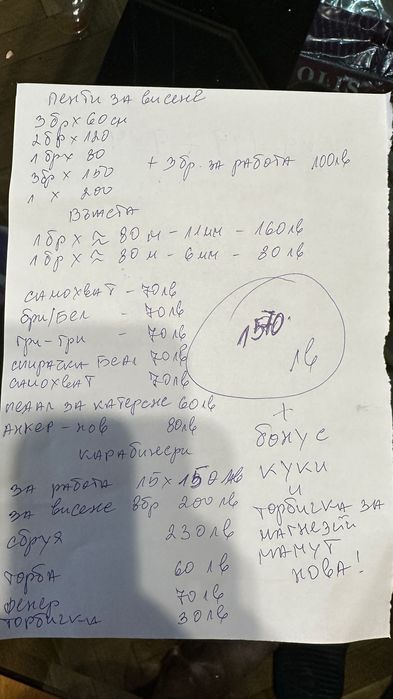 ЛЕНТИ ЗА ВИСЕНЕ
3бр x 60см
2бр x 120
1бр x 80
3бр x 150
1 x 200
+ 3бр. ЗА РАБОТА 100лв
ВЪЖЕТА
1бр x ≈ 80м - 11мм - 160лв
1бр x ≈ 80м - 6мм - 80лв
САМОХВАТ - 70лв
ГРИ/БЕЛ - 70лв
ГРИ-ГРИ - 70лв
СПИРАЧКА БЕАЛ 70лв
САМОХВАТ 70лв
ПЕДАЛ ЗА КАТЕРЕНЕ 60лв
АНКЕР - НОВ 80лв
1570.
лв
+
БОНУС
КУКИ
И
ТОРБИЧКА ЗА
МАГНЕЗИЙ
МАМУТ
НОВА!
КАРАБИНЕРИ
ЗА РАБОТА 15 x 150лв
ЗА ВИСЕНЕ 8бр 200лв
СБРУЯ 230лв
ТОРБА 60лв
ФЕНЕР 70лв
ТОРБИЧКА 30лв